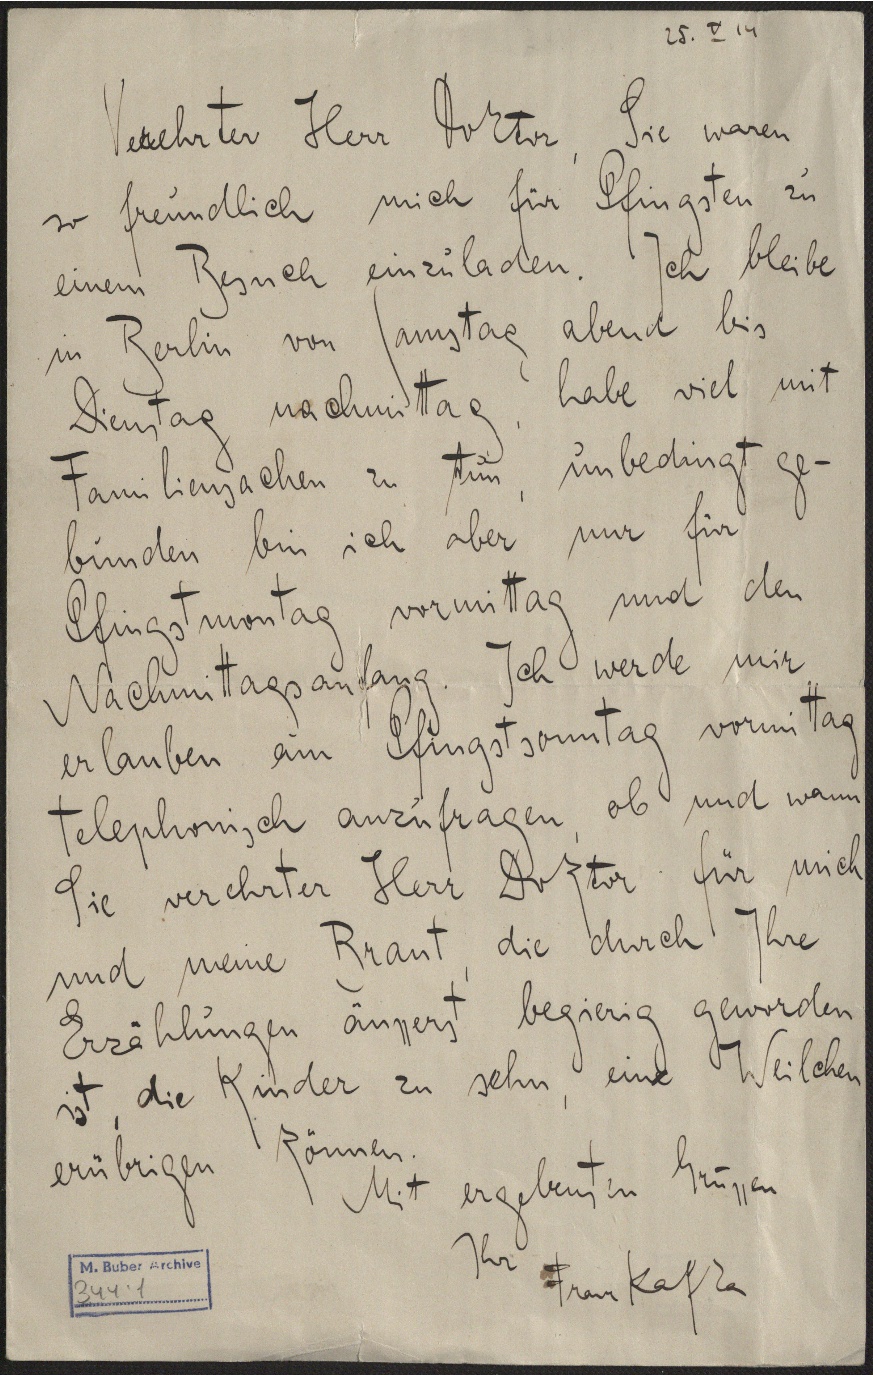 25. V 14
Verehrter Herr Doktor, Sie waren
so freundlich mich für Pfingsten zu
einem Besuch einzuladen. Ich bleibe
in Berlin von Samstag abend bis
Dienstag nachmittag, habe viel mit
Familiensachen zu tun, unbedingt ge-
bunden bin ich aber nur für
Pfingstmontag vormittag und den
Nachmittagsanfang. Ich werde mir
erlauben am Pfingstsonntag vormittag
telephonisch anzufragen, ob und wann
Sie verehrter Herr Doktor für mich
und meine Braut, die durch Ihre
Erzählungen äußerst begierig geworden
ist, die Kinder zu sehn, eine Weilchen
erübrigen können.
Mit ergebensten Grüßen
Ihr Franz Kafka
M. Buber Archive
344:1